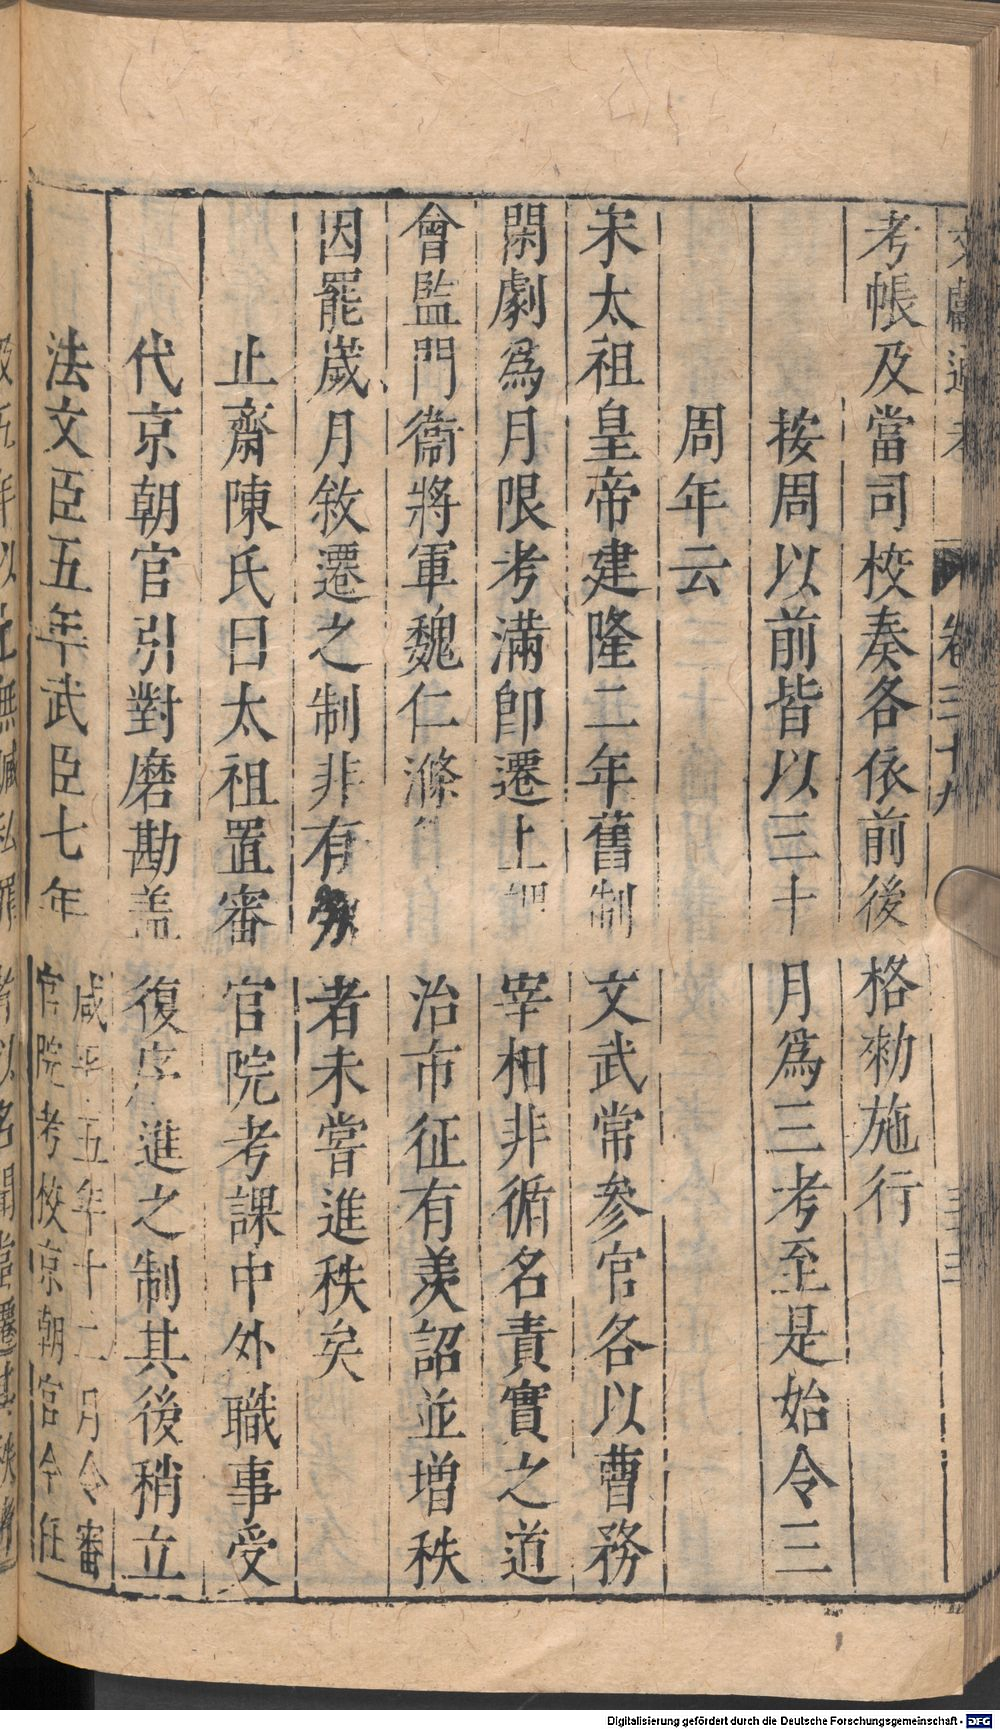 文獻通考 卷三十九 三十三
考帳及當司校奏各依前後格勑施行
按周以前皆以三十月爲三考至是始令三
周年云
宋太祖皇帝建隆二年舊制文武常參官各以曹務
閑劇爲月限考滿卽遷上謂宰相非循名責實之道
會監門衞將軍魏仁滌治市征有羨詔並增秩
因罷歲月敘遷之制非有勞者未嘗進秩矣
止齋陳氏曰太祖置審官院考課中外職事受
代京朝官引對磨勘盖復序進之制其後稍立
法文臣五年武臣七年
咸平五年十二月令審
官院考校京朝官令任
及五年以上無贓私罪
者以名聞當遷其秩
Digitalisierung gefördert durch die Deutsche Forschungsgemeinschaft - DFG